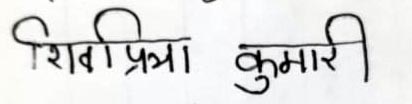 शिवप्रिया कुमारी